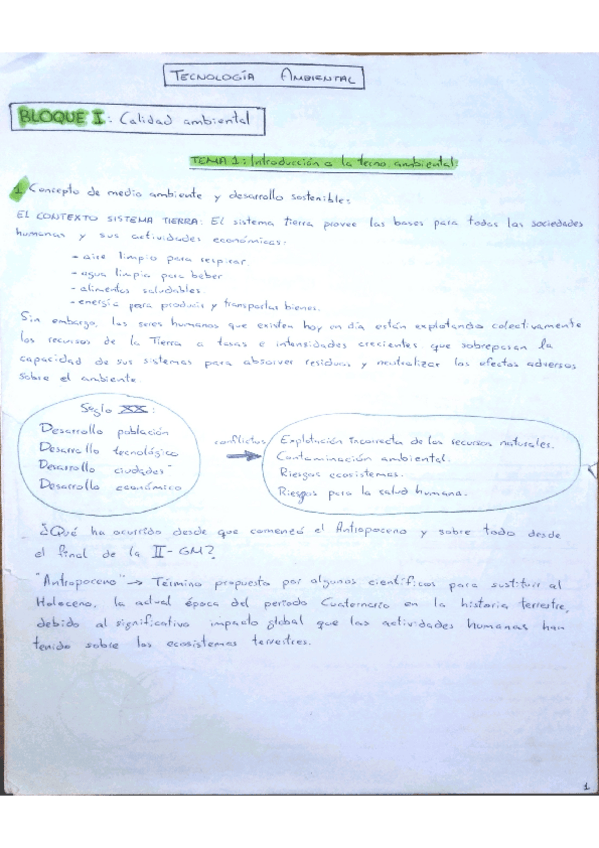 TECNOLOGÍA AMBIENTAL
BLOQUE I: Calidad ambiental
TEMA 1: Introducción a la tecno. ambiental
1 Concepto de medio ambiente y desarrollo sostenible:
EL CONTEXTO SISTEMA TIERRA: El sistema tierra provee las bases para todas las sociedades
humanas y sus actividades económicas:
- aire limpio para respirar
- agua limpia para beber
- alimentos saludables.
- energía para producir y transportar bienes.
Sin embargo, los seres humanos que existen hoy en día están explotando colectivamente
los recursos de la Tierra a tasas e intensidades crecientes que sobrepasan la
capacidad de sus sistemas para absorver residuos y neutralizar los efectos adversos
sobre el ambiente.
Siglo XX:
Desarrollo población
Desarrollo tecnológico
Desarrollo ciudades
Desarrollo económico
conflictos
Explotación incorrecta de los recursos naturales.
Contaminación ambiental.
Riesgos ecosistemas.
Riesgos para la salud humana.
¿Qué ha ocurrido desde que comenzó el Antropoceno y sobre todo desde
el final de la II-GM?
"Antropoceno" → Término propuesto por algunos científicos para sustituir al
Holoceno, la actual época del período Cuaternario en la historia terrestre,
debido al significativo impacto global que las actividades humanas han
tenido sobre los ecosistemas terrestres.
1